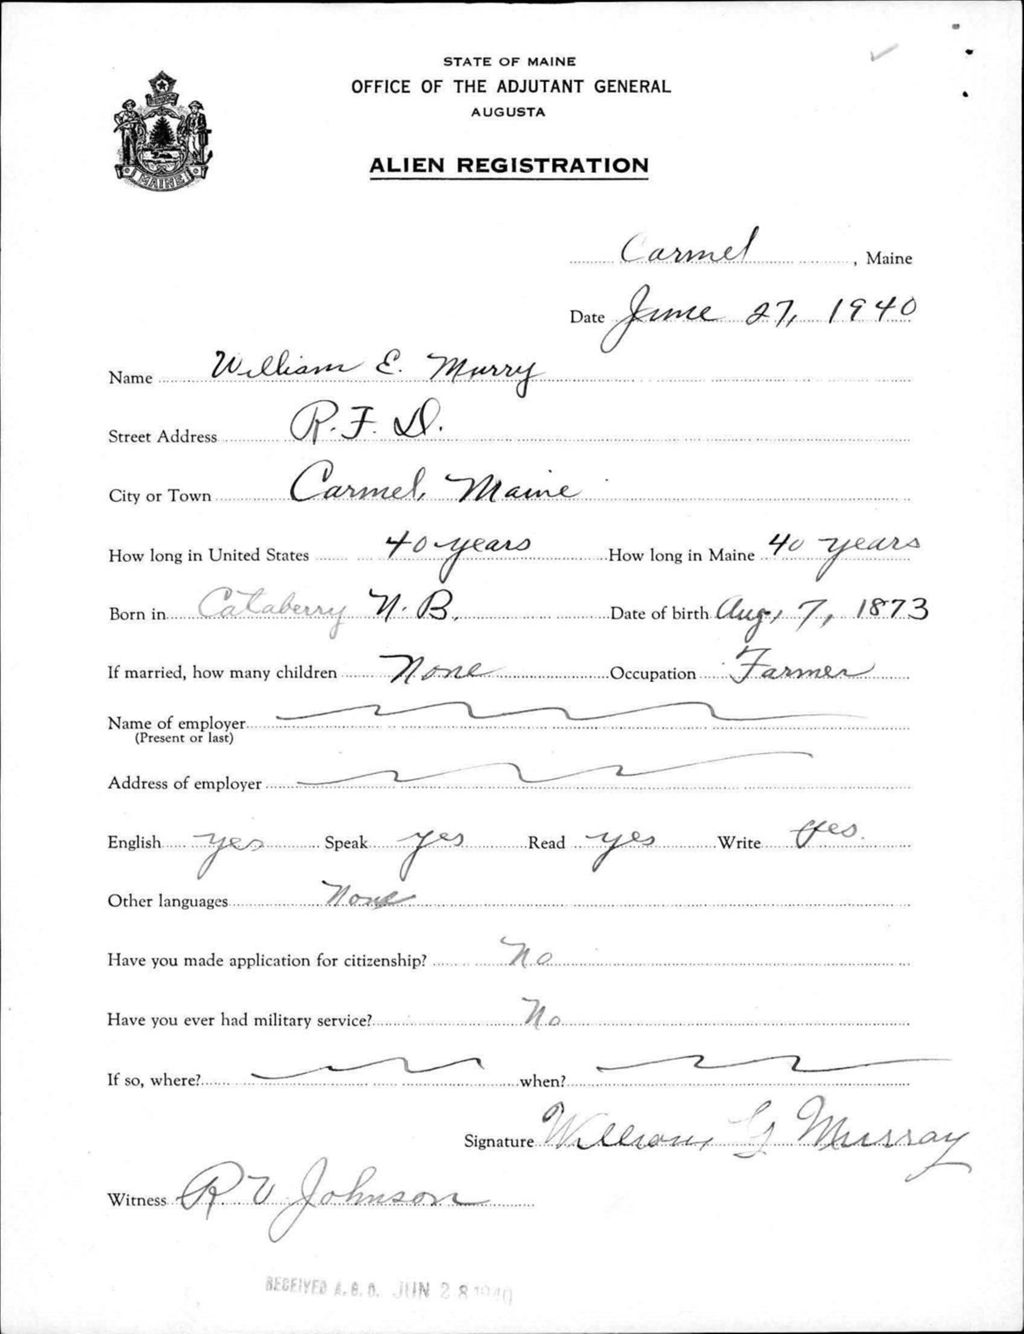 STATE OF MAINE
OFFICE OF THE ADJUTANT GENERAL
AUGUSTA
MAINE
ALIEN REGISTRATION
Carmel, Maine
Date June 27, 1940
Name William E. Murry
Street Address R. F. D.
City or Town Carmel, Maine
How long in United States 40 years How long in Maine 40 years
Born in Cataberry N. B. Date of birth Aug, 7, 1873
If married, how many children None Occupation Farmer
Name of employer
(Present or last)
Address of employer
English yes Speak yes Read yes Write yes.
Other languages None
Have you made application for citizenship? No
Have you ever had military service? No
If so, where? when?
Signature William G Murray
Witness R V Johnson
RECEIVED A.G.O. JUN 28 1940